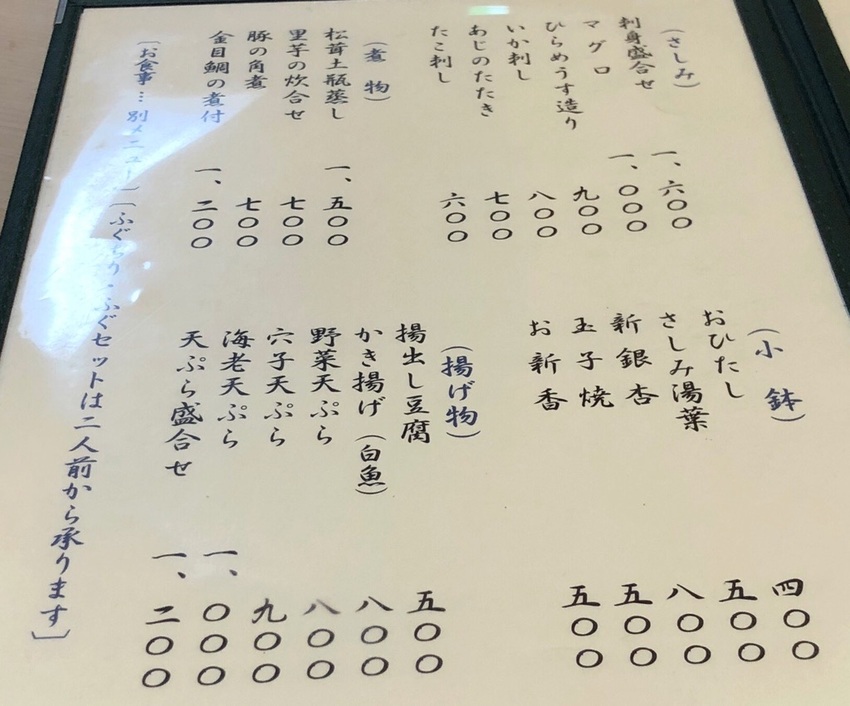 (さしみ)
刺身盛合せ 一、六〇〇
マグロ 一、〇〇〇
ひらめうす造り 九〇〇
いか刺し 八〇〇
あじのたたき 七〇〇
たこ刺し 六〇〇
(煮物)
松茸土瓶蒸し 一、五〇〇
里芋の炊合せ 七〇〇
豚の角煮 七〇〇
金目鯛の煮付 一、二〇〇
(小鉢)
おひたし 四〇〇
さしみ湯葉 五〇〇
新銀杏 八〇〇
玉子焼 五〇〇
お新香 五〇〇
(揚げ物)
揚出し豆腐 五〇〇
かき揚げ(白魚) 八〇〇
野菜天ぷら 八〇〇
穴子天ぷら 九〇〇
海老天ぷら 一、〇〇〇
天ぷら盛合せ 一、二〇〇
(お食事…別メニュー)〔ふぐちり・ふぐセットは二人前から承ります〕